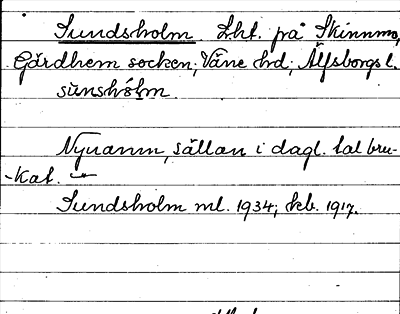 Sundsholm. Lht. på Skinnmo,
Gärdhem socken, Väne hd, Älfsborgs l.
sùnshól̥m.
Nynamn, sällan i dagl. tal bru-
-kat.
Sundsholm ml. 1934; kb. 1917.